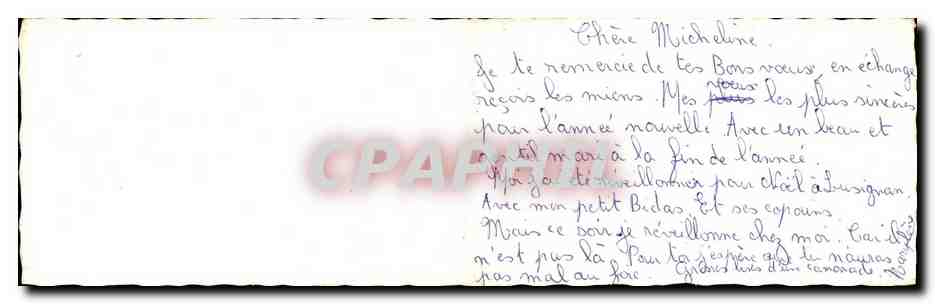 Chère Micheline.
Je te remercie de tes Bons vœux, en échange
reçois les miens. Mes vœux les plus sincères
pour l'anneé nouvelle. Avec un beau et
gentil mari à la fin de l'anneé.
Moi j'ai été réveillonner pour Noël à Lusignan.
Avec mon petit Bidas. Et ses copains.
Mais ce soir je réveillonne chez moi. Car il
n'est pas là. Pour toi j'espère que tu n'auras
pas mal au foie. Grosses bises d'une camarade.
CPAPHIL